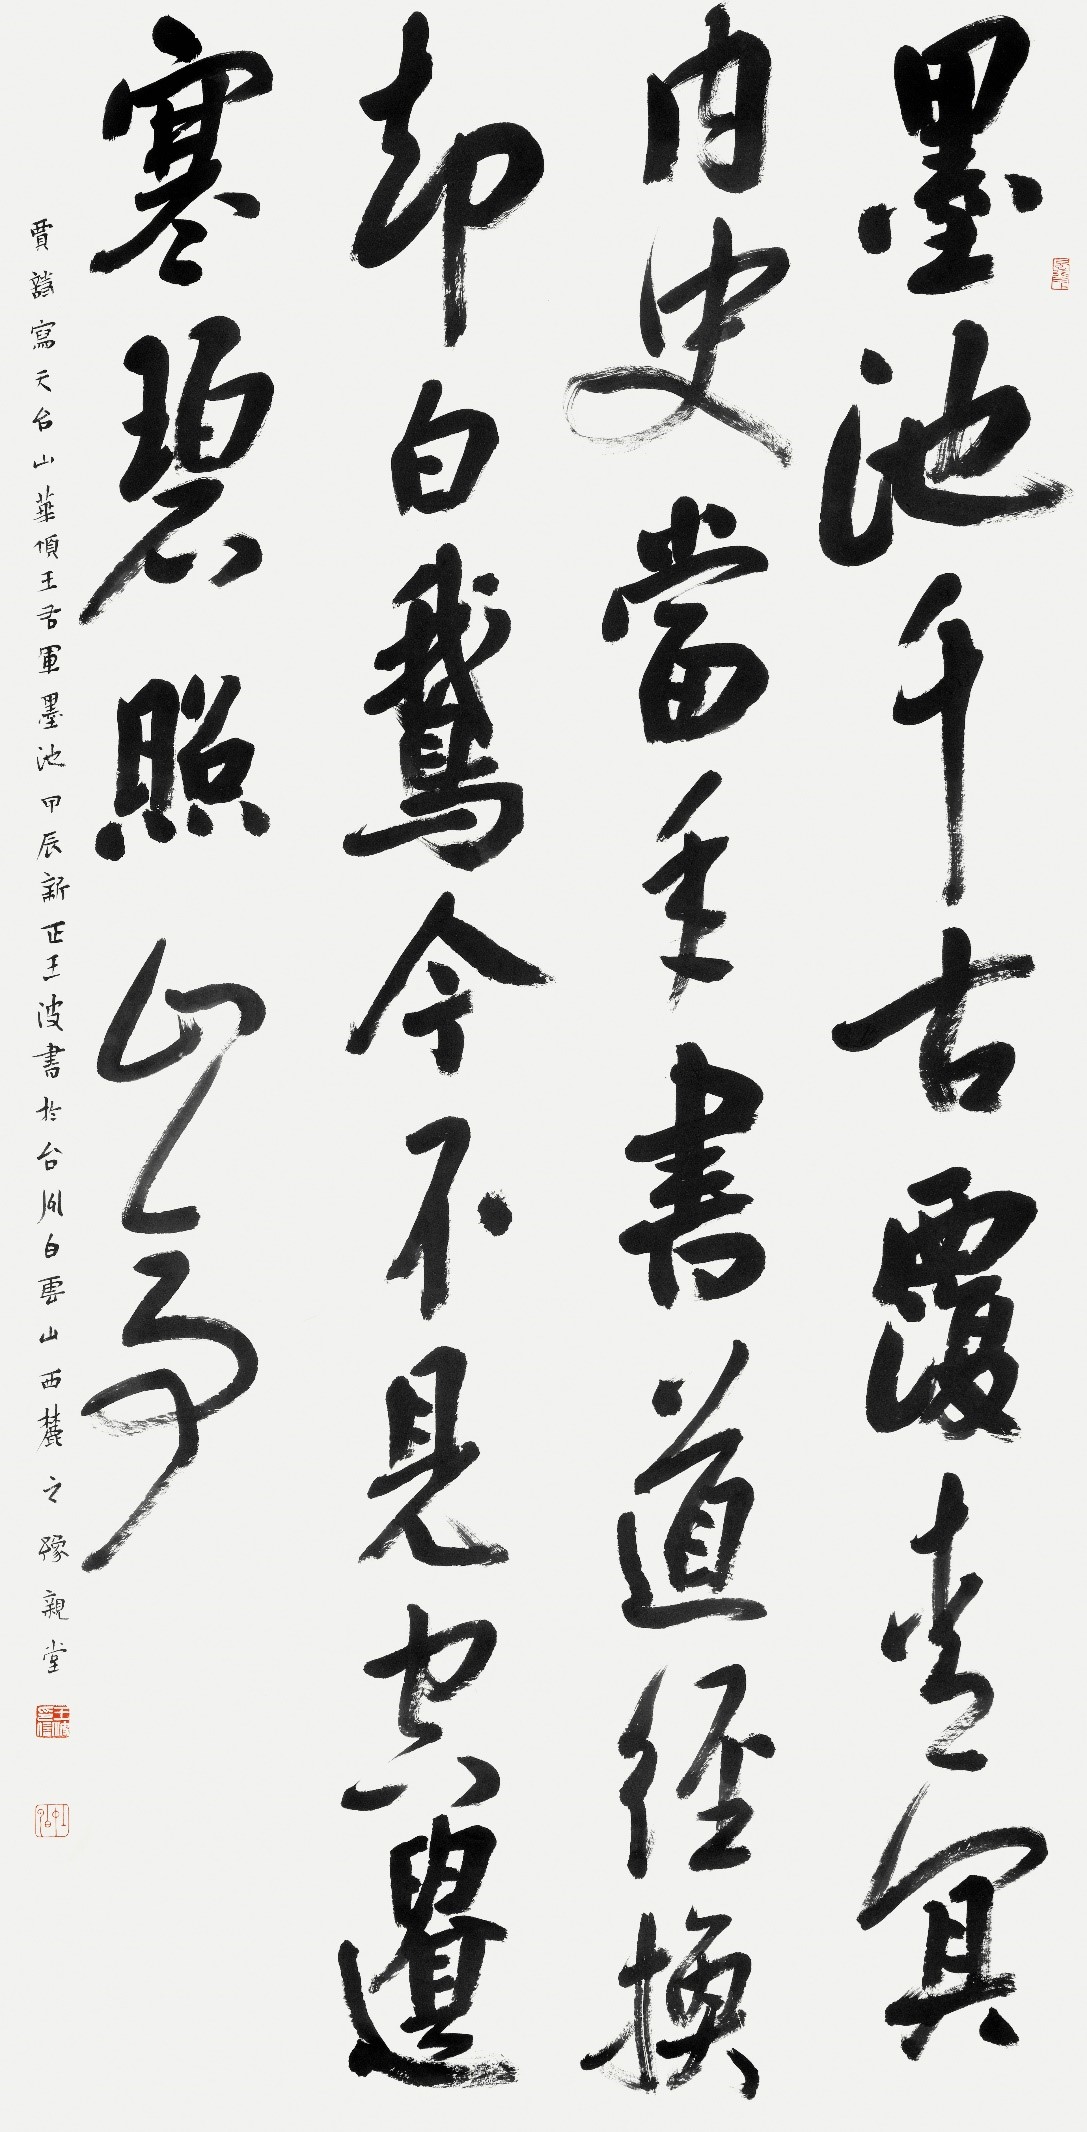 墨池千古覆青冥
内史當年書道經換
却白鵝今不見空遺
寒碧照山亭
賈 寫天台山華頂王右軍墨池甲辰新正王波書於台州白雲山西麓之豫親堂